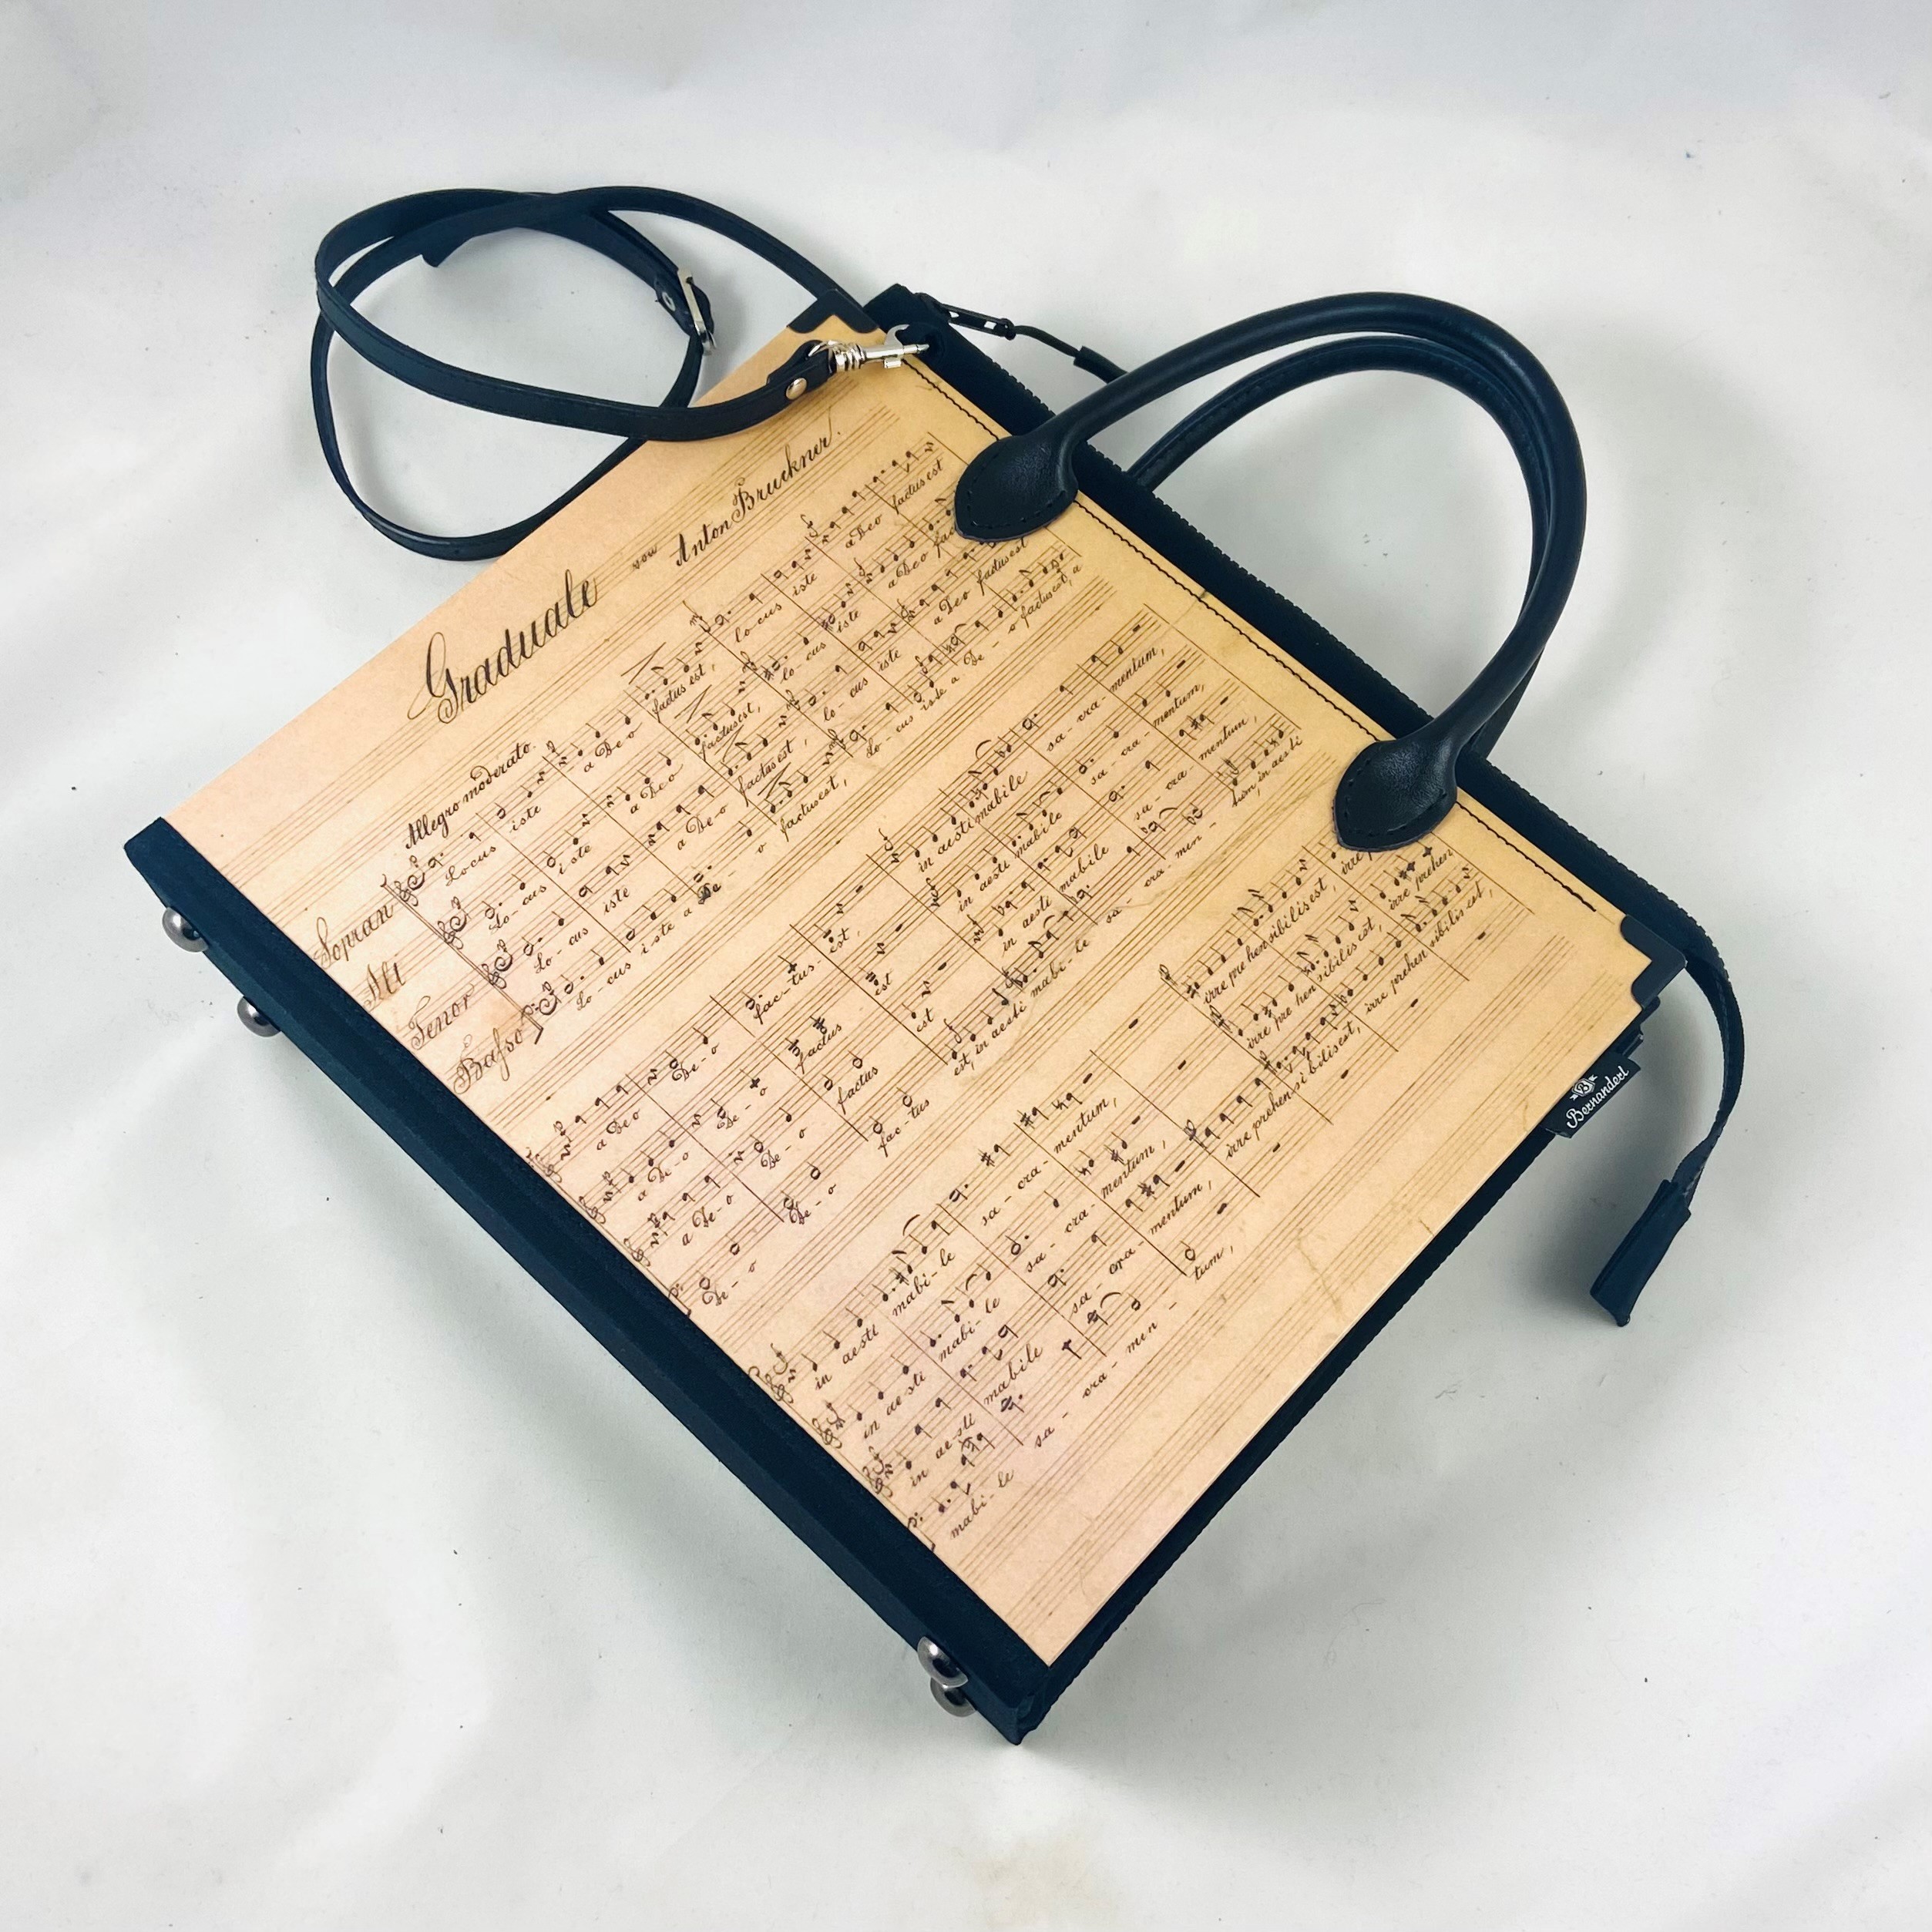 Graduale
von Anton Bruckner.
Allegro moderato.
Sopran
Locus iste a Deo factus est, locus iste a Deo factus est
Alt
Lo-cus iste a Deo factus est, lo-cus iste a Deo
Tenor
Lo-cus iste a De-o factus est, lo-cus iste a Deo factus est
Basso
Lo-cus iste a De-o factus est, lo-cus iste a De-o factus est, a
a Deo De-o fac-tus est, in aesti mabile sa-cra-mentum,
a De-o De-o factus est in aesti mabile sa-cra-mentum,
a De-o De-o factus est in aesti mabile sa-cra mentum,
De-o De-o fac-tus est, in aesti mabi-le sa-cra-men-tum, in aesti
in aesti mabi-le sa-cra-mentum, irre prehensibilis est,
in ae-sti mabi-le sa-cra-mentum, irre prehensibilis est, irre prehen
in ae-sti mabile sa-cra-mentum, irre prehensibilis est, irre prehensibilis est,
mabi-le sa-cra-men-tum,
Bernanderl